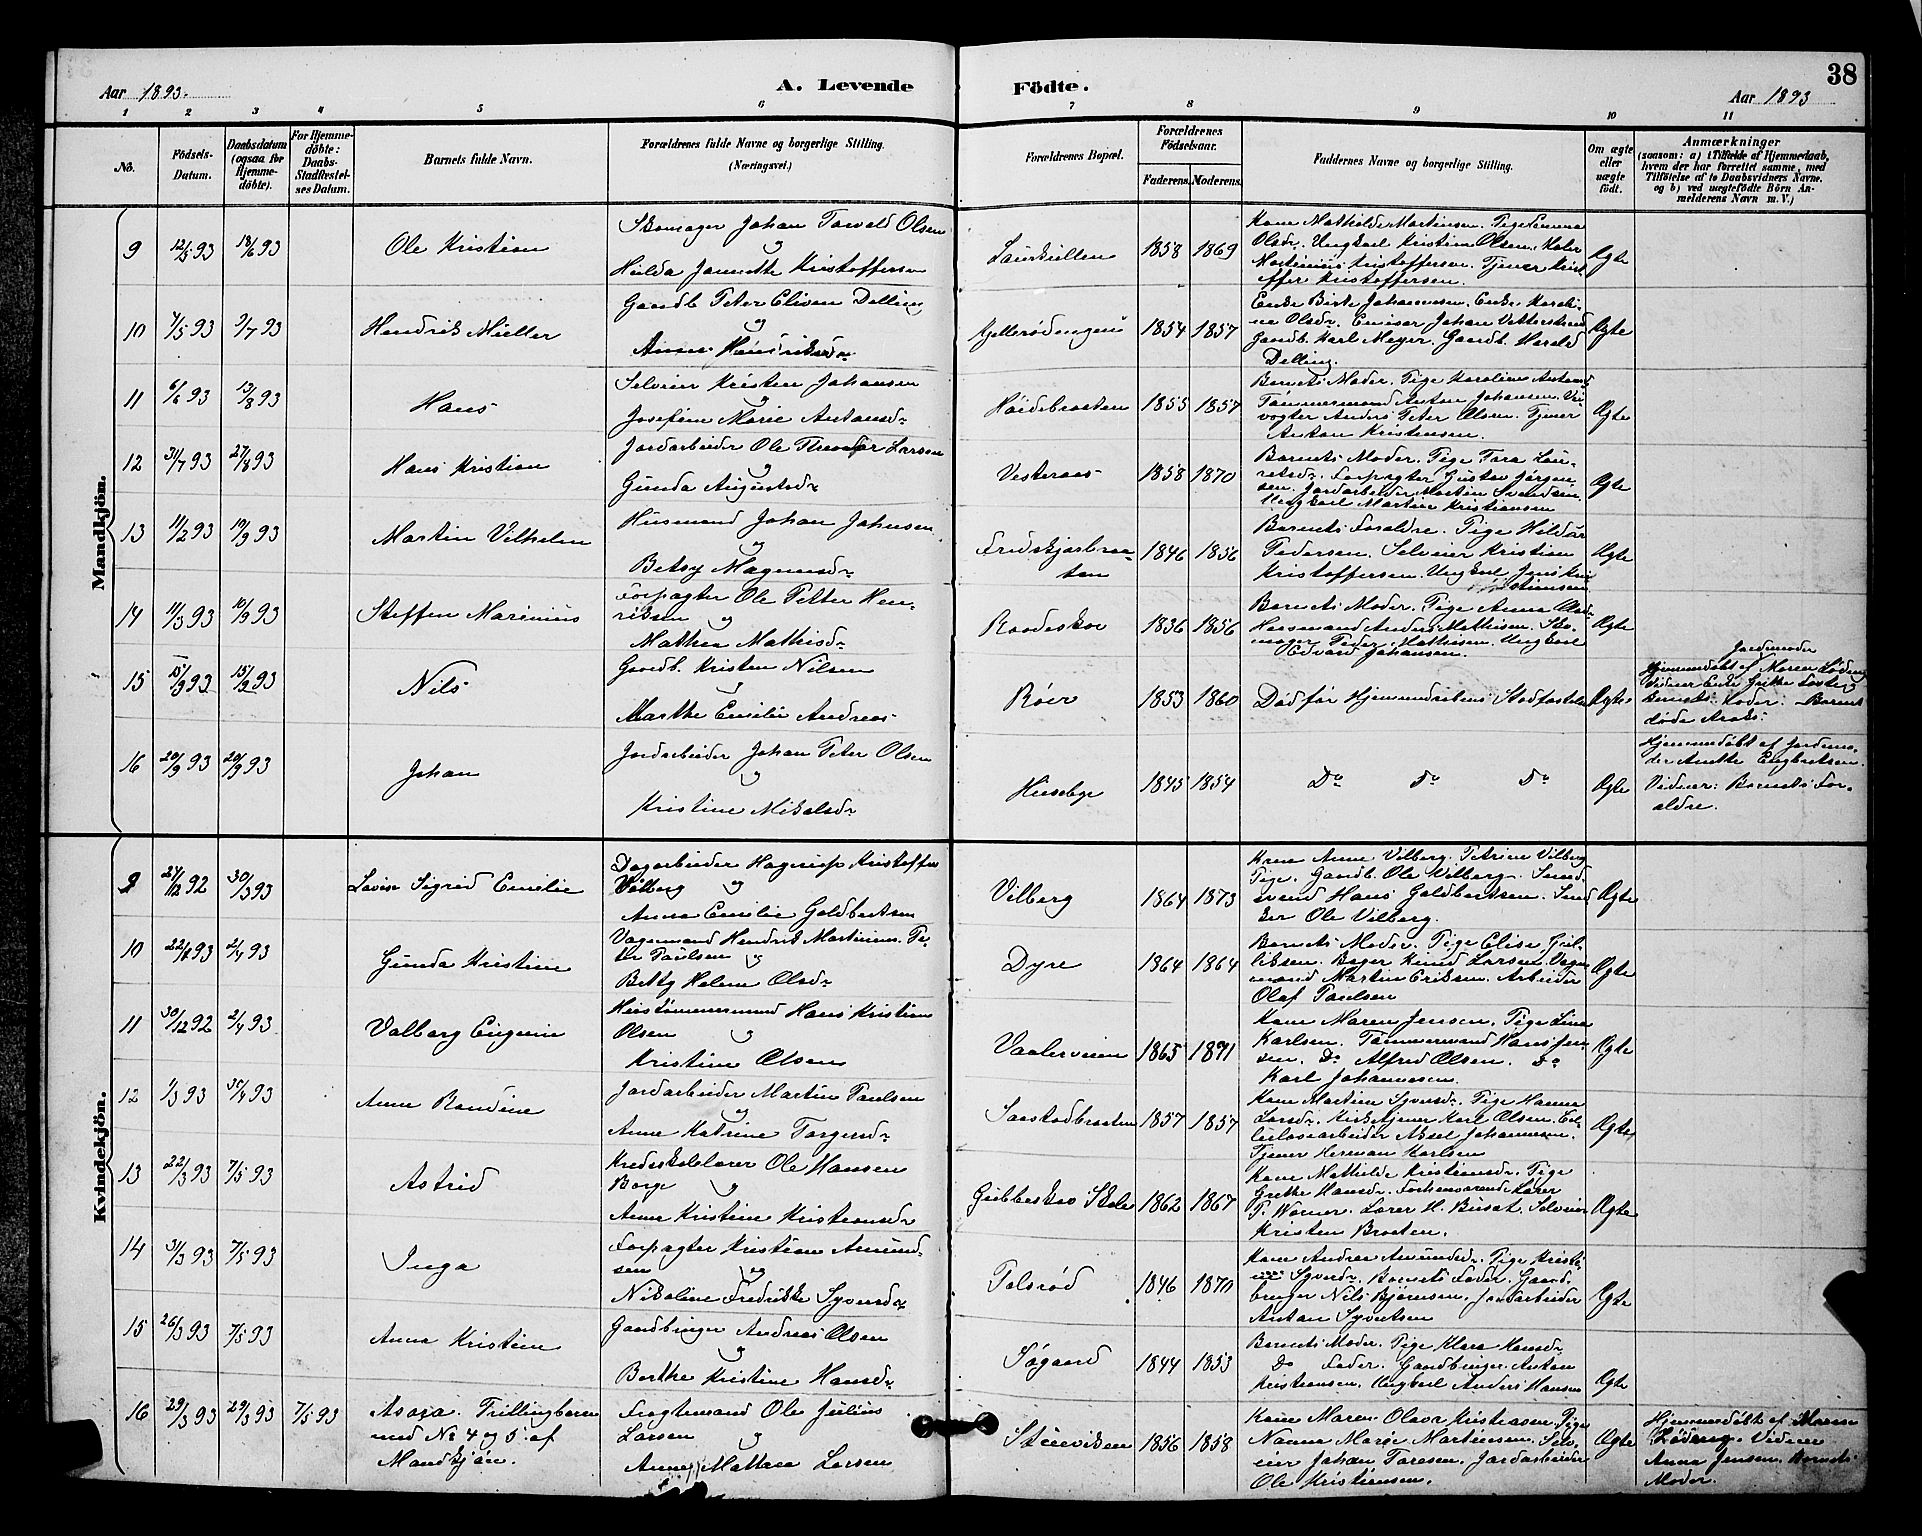 38
Aar 1893.
A. Levende Födte.
Aar 1893
1 2 3 4 5 6 7 8 9 10 11
No.
Födsels-Datum.
Daabsdatum (ogsaa for Hjemme-döbte).
For Hjemme-döbte: Daabs-Stadfæstel-ses Datum.
Barnets fulde Navn.
Forældrenes fulde Navne og borgerlige Stilling. (Næringsvei.)
Forældrenes Bopæl.
Forældrenes Födselsaar.
Faderens. Moderens.
Faddernes Navne og borgerlige Stilling.
Om ægte eller uægte födt.
Anmærkninger
(saasom: a) i Tilfælde af Hjemmedaab, hvem der har forrettet samme, med Tilföielse af to Daabsvidners Navne, og b) ved uægtefödte Börn Anmelderens Navn m. V.)
Mandkjön.
9 12/5 93 18/6 93 Ole Kristian
Skomager Johan Torvald Olsen
og
Hulda Jannette Kristoffersen
1858 1869
Kone Mathilde Martinsen. Pige
Olsdr. Ungkarl Kristian Olsen.
Martinius Kristoffersen. Tjener Krist
offer Kristoffersen.
Ægte
10 7/5 93 2/7 93 Hendrik Müller
Gaardb. Peter Elison Delling
og
Anne Hendriksdr
1854 1857
Enke Birte Johannesen. Enke Karoli-
ne Olsdr. Johan
Gaardb. Karl Meyer. Gaardb. Harald
Delling.
Ægte
11 6/6 93 13/8 93 Hans
Selveier Kristen Johansen
og
Josefine Marie Antonsd.
Höidebraaten 1855 1857
Barnets Moder. Pige Karoline Antons
Tömmermand Anton Johansen.
vogter Anders Peter Olsen. Tjener
Anton Kristensen.
Ægte
12 31/7 93 27/8 93 Hans Kristian
Jordarbeider Ole Larsen
og
Gunda Augustsdr
Vesteraas 1858 1870
Barnets Moder. Pige Tora Lau-
ritsdr. Forpagter Gustav Jörgen-
sen. Jordarbeider Martin Svendsen
Ungkarl Martin Kristiansen
Ægte
13 11/2 93 19/9 93 Martin Vilhelm
Husmand Johan Johnsen
og
Betsy Magnusdr
1846 1856
Barnets Forældre. Pige Hildur
Pedersen. Selveier Kristian
Kristoffersen. Ungkarl Jens Kri
stiansen
Ægte
14 11/3 93 10/9 93 Steffen Marinius
Forpagter Ole Petter Hen-
riksen og
Mathea Mathisdr
1836 1856
Barnets Moder. Pige Anna Olsdr
Husmand Anders Mathisen. Sko-
mager Peder Mathisen. Ungkarl
Edvard Johansen.
Ægte
15 15/9 93 15/9 93 Nils
Gaardb. Kristen Nilsen
og
Marthe Emilie Andreas
Röer 1853 1860
Död för Hjemmedaabens Stadfæstelse
Ægte
Jordemoder
Hjemmedöbt af Maren
Vidner Enke Grethe
Barnets Moder. Barnet
döde straks.
16 20/9 93 20/9 93 Johan
Jordarbeider Johan Peter Olsen
og
Kristine Mikalsdr
Huseby 1845 1854
Do Do Do
Ægte
Hjemmedöbt af Jordemo-
der Anette Engbretsen.
Vidner: Barnets For-
ældre.
Kvindekjön.
9 27/12 92 30/3 93 Lovise Sigrid Emilie
Dagarbeider Hagerup Kristoffer
Vilberg og
Anna Emilie Goldbertsen
Vilberg 1864 1873
Kone Anne Vilberg. Petrine Vilberg
Pige. Gaardb. Ole Vilberg. Smed
svend Hans Goldbertsen.
Ole Vilberg.
Ægte
10 22/1 93 2/4 93 Gunda Kristine
Vognmand Hendrik Martinius Pe-
ter Paulsen og
Betty Helene Olsdr
Dyre 1864 1864
Barnets Moder. Pige Elise
Bager Knud Larsen. Vogn-
mand Martin Eriksen. Arbeider
Olaf Paulsen
Ægte
11 30/12 92 2/4 93 Valborg Eugenie
Hustömmermand Hans Kristian
Olsen og
Kristine Olsen
Vaalerveien 1865 1871
Kone Maren Jensen. Pige Lina
Karlsen. Tömmermand Hans Jen-
sen. Do Alfred Olsen. Do
Karl Johannesen.
Ægte
12 1/3 93 30/4 93 Anne Randine
Jordarbeider Martin Paulsen
og
Anne Katrine Torgersdr
Saastadbraaten 1857 1857
Kone Martine Syversdr. Pige Hanna
Larsdr. Kirketjener Karl Olsen. Cel-
lulosearbeider Aksel Johannesen.
Tjener Herman Karlsen
Ægte
13 22/3 93 7/5 93 Astrid
Kredsskolelærer Ole Hansen
Borge og
Anne Kristine Kristiansdr
Gubbeskov Skole 1862 1867
Kone Mathilde Kristiansdr. Pige
Grethe Hansdr. Forhenværende Lærer
P. Wörner. Lærer H. Busat. Selveier
Kristen Braaten.
Ægte
14 31/3 93 7/5 93 Inga
Forpagter Kristian Amund-
sen og
Nikoline Fredrikke Syversdr
Tolsröd 1846 1870
Kone Andrea Amundsdr. Pige Kristi-
ne Syversdr. Barnets Fader. Gaard-
bruger Nils Bjornsen. Jordarbeider
Anton Syvertsen
Ægte
15 26/3 93 7/5 93 Anna Kristine
Gaardbruger Andreas Olsen
og
Berthe Kristine Hansdr
Tögaard 1844 1853
Barnets Moder. Pige Klara Hansdr
Do Fader. Gaardbruger Anton
Kristiansen. Ungkarl Anders Hansen
Ægte
16 29/3 93 29/3 93 7/5 93 Asora. Trillingbarn
med No 4 og 5 af
Mandkjön.
Fragtemand Ole Julius
Larsen og
Anne Mathea Larsen
1856 1858
Kone Maren Olava Kristiansen. Pige
Nanna Marie Martinsen. Selv-
eier Johan Toresen. Jordarbeider
Ole Kristiansen.
Ægte
Hjemmedöbt af Maren
Vidner
Anna Jensen. Barnets
Moder.